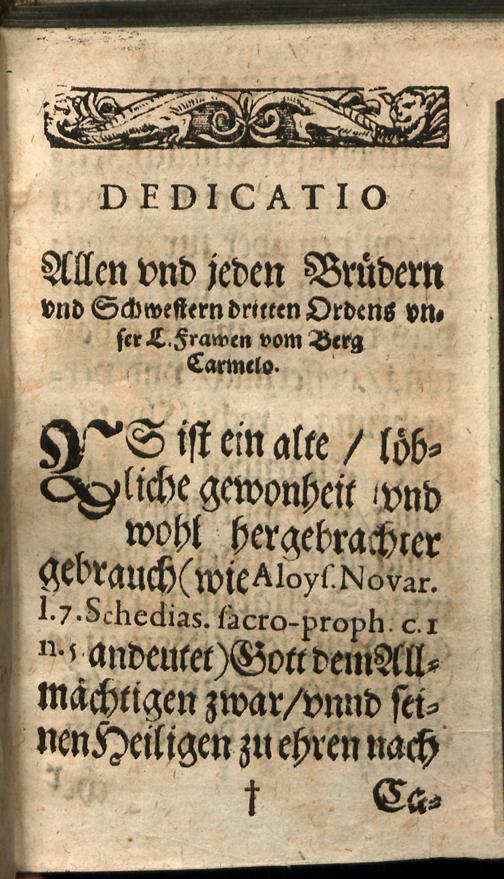 DEDICATIO
Allen vnd jeden Brüdern
vnd Schwestern dritten Ordens vn⸗
ser L. Frawen vom Berg
Carmelo.
ES ist ein alte / löb⸗
liche gewonheit / vnd
wohl hergebrachter
gebrauch (wie Aloyſ. Novar.
l. 7. Schedias. ſacro-proph. c. 1
n. 5 andeutet) Gott dem All⸗
mächtigen zwar / vnnd sei⸗
nen Heiligen zu ehren nach
† Ca⸗